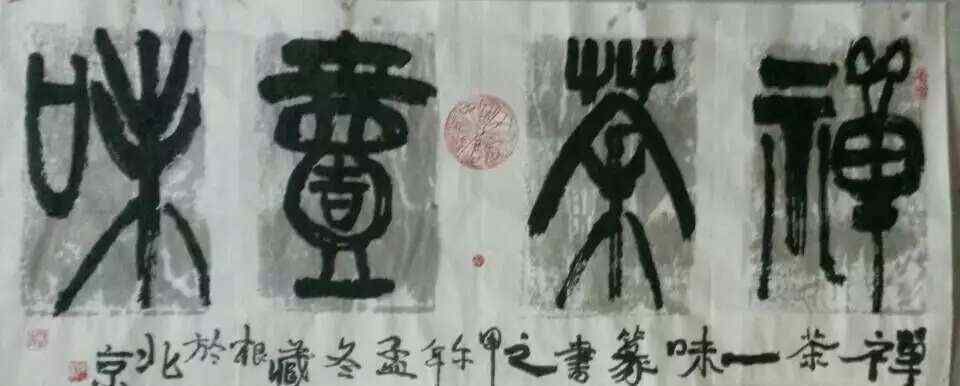 禪茶壹味
禪茶一味篆書之甲午年孟冬藏根於北京